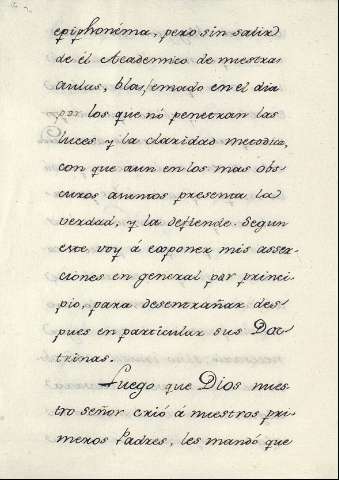 epiphonéma, pero sin salir
de él Academico de nuestras
aulas, blasfemado en el dia
por los que nó penetran las
luces y la claridad metodica,
con que aun en los mas obs-
curos asuntos presenta la
verdad, y la defiende. Segun
este voy á exponer mis aser-
ciones en general por princi-
pio, para desentrañar des-
pues en particular sus Doc-
trinas.
Luego que Dios nues-
tro señor crió á nuestros pri-
meros Padres, les mandó que